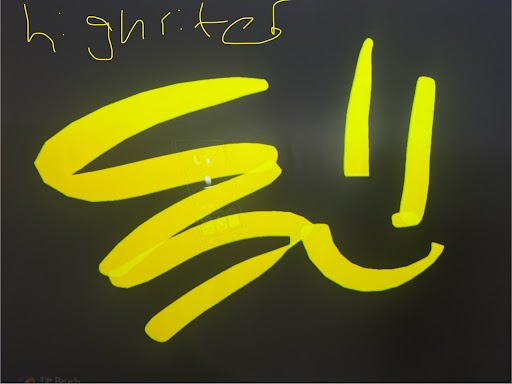 highriter
Tilt Brush